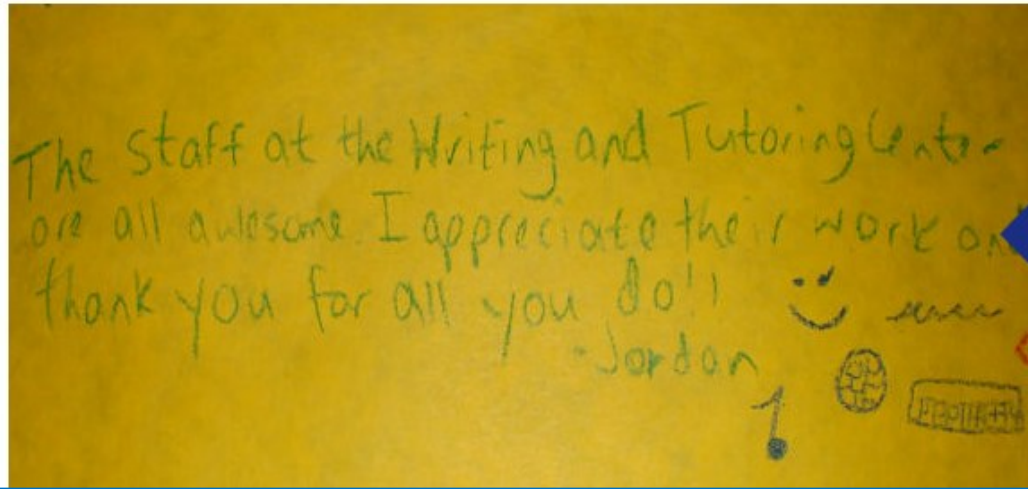 The staff at the Writing and Tutoring Center
are all awesome. I appreciate their work an
thank you for all you do!!
-Jordan